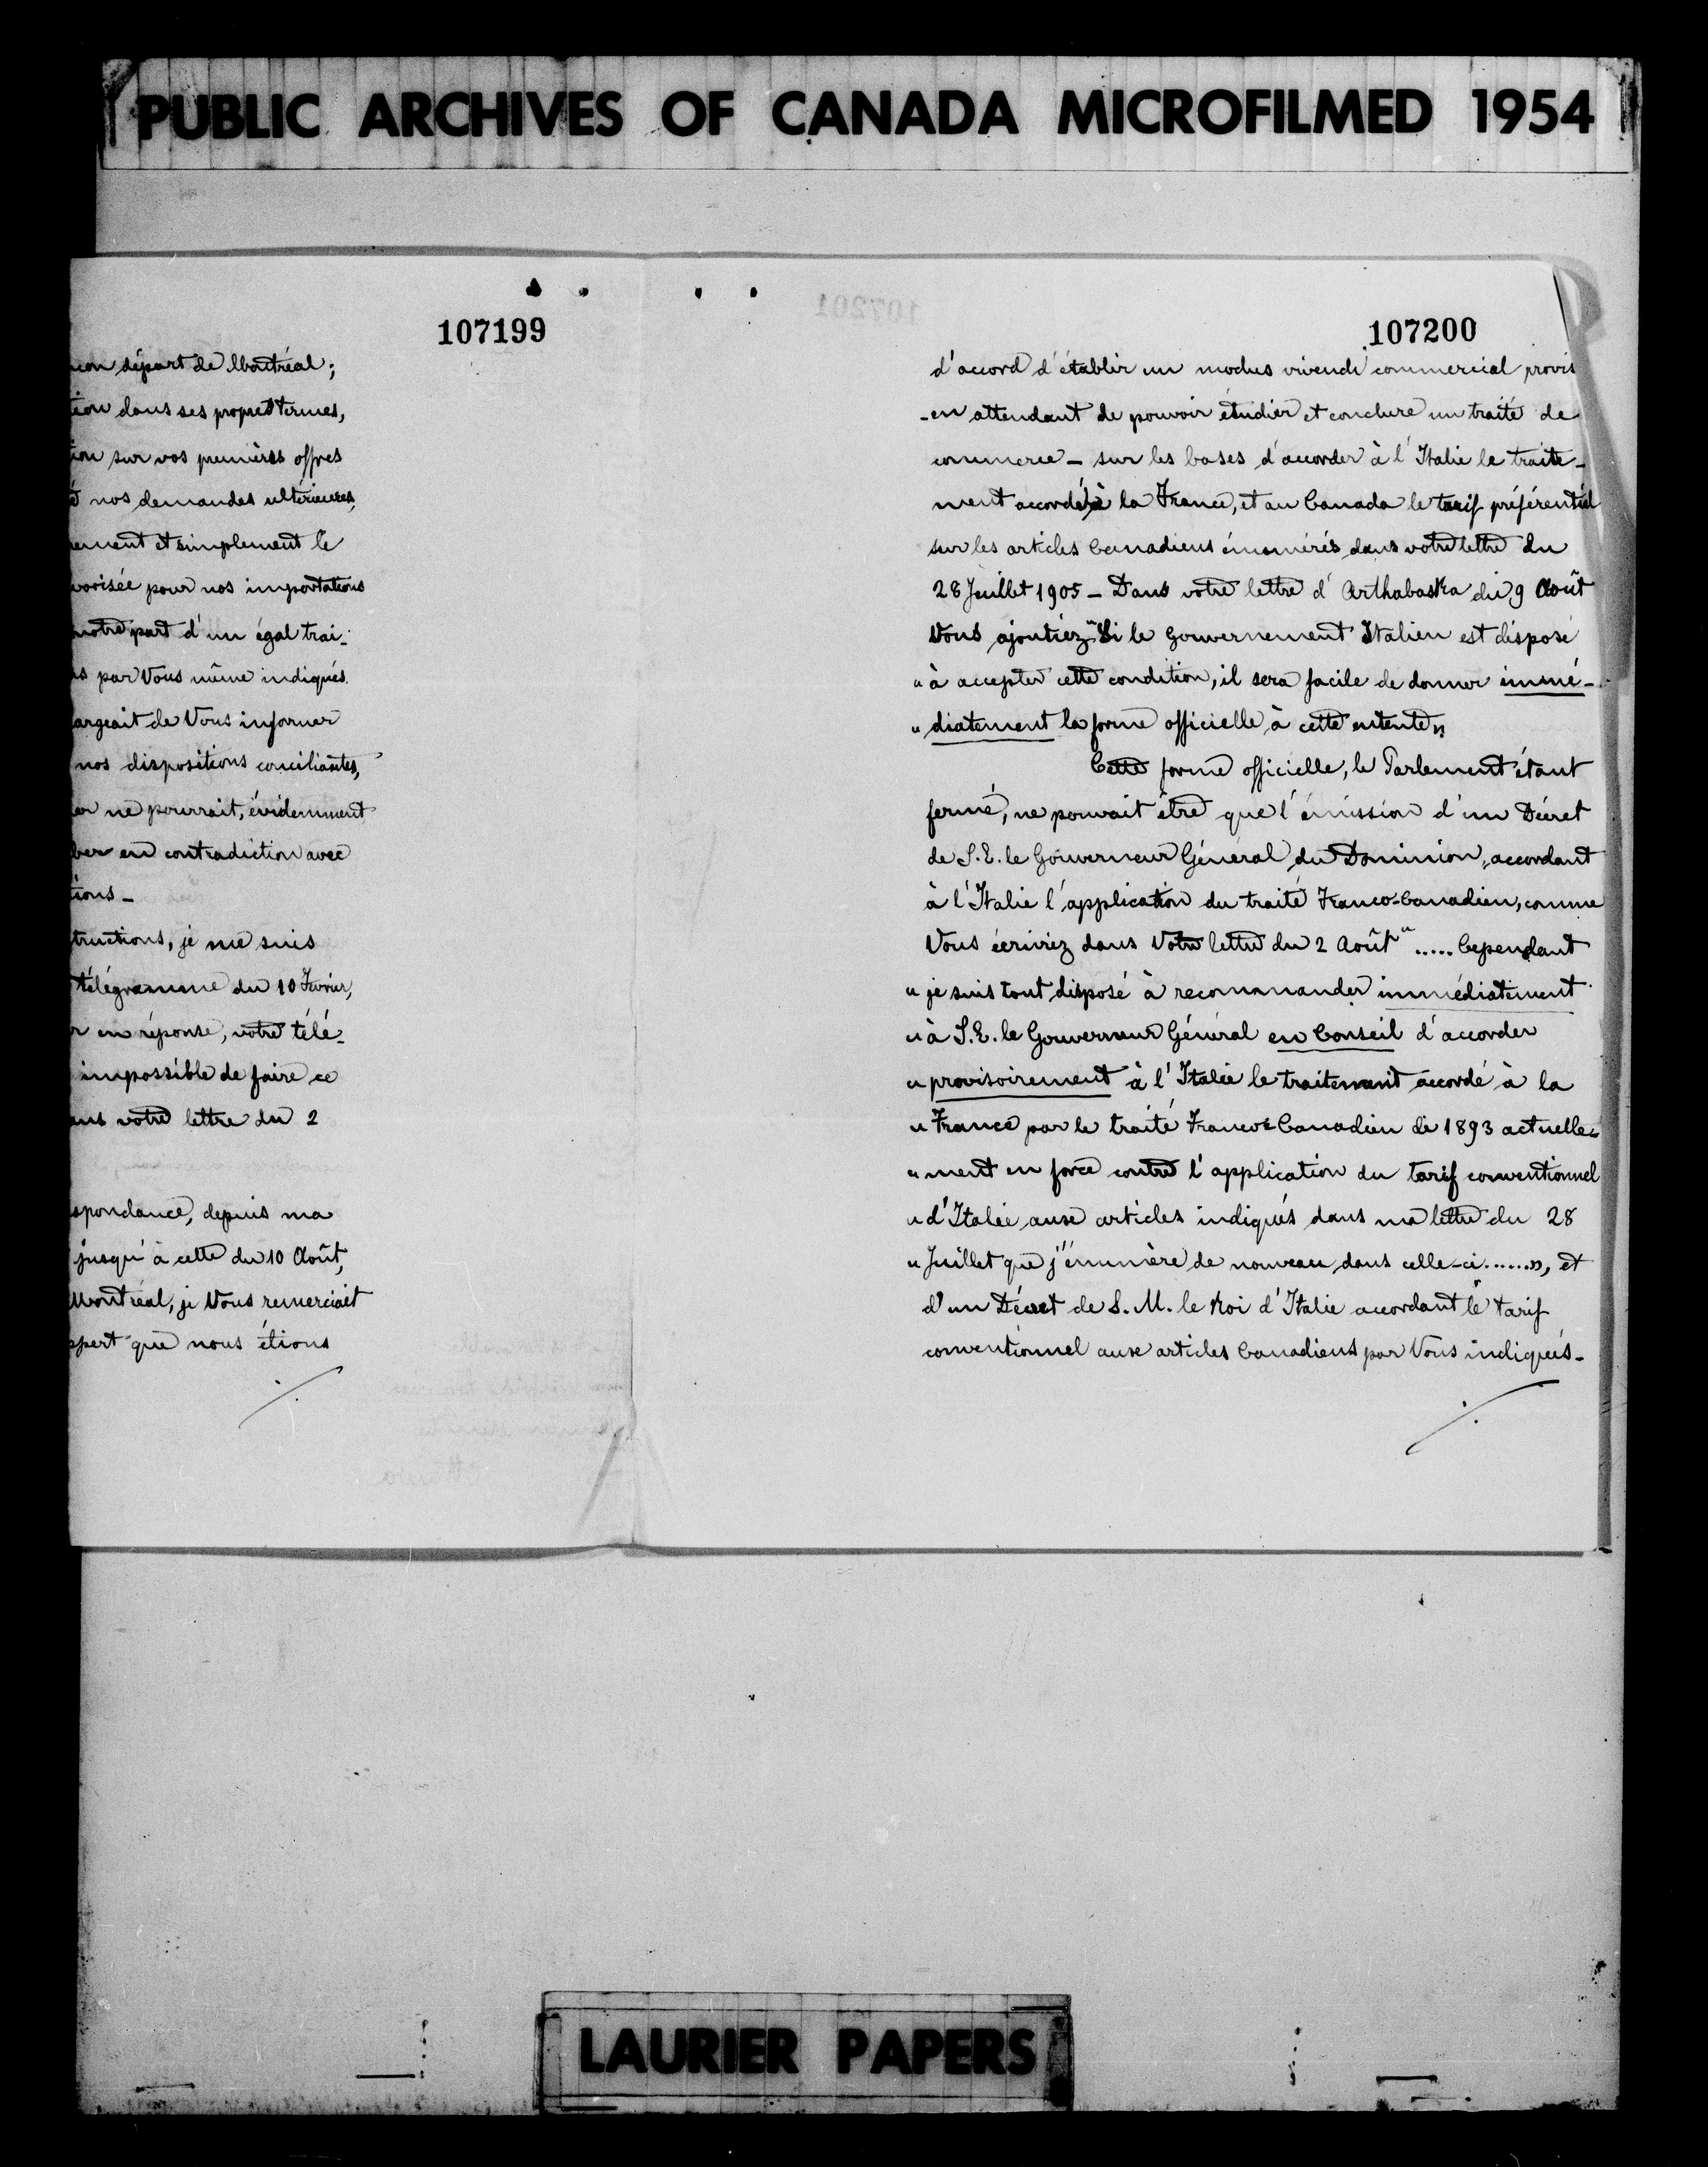 PUBLIC ARCHIVES OF CANADA MICROFILMED 1954
107199
mon départ de Montréal;
tion dans ses propres termes,
ion sur vos premières offres
é nos demandes ultérieures,
rement et simplement le
vorisée pour nos importations
notre part d'un égal trai-
ls par Vous même indiqués.
argeait de Vous informer
nos dispositions conciliantes,
er ne pourrait, évidemment
ber en contradiction avec
tions _
tructions, je me suis
télégramme du 10 Février,
r en réponse, votre télé-
impossible de faire ce
ans votre lettre du 2
spondance, depuis ma
jusqu'à cette du 10 Août,
Montréal, je Vous remerciait
ppert que nous étions
./.
107201
107200
d'accord d'établir un modus vivendi commercial provis
-en attendant de pouvoir étudier et conclure un traité de
commerce _ sur les bases d'accorder à l'Italie le traite-
ment accordé à la France, et au Canada le tarif préférentiel
sur les articles Canadiens énumérés dans votre lettre du
28 Juillet 1905 _ Dans votre lettre d'Arthabaska du 9 Août
Vous ajoutiez "Si le Gouvernement Italien est disposé
" à accepter cette condition, il sera facile de donner immé-
" diatement la forme officielle à cette entente"
Cette forme officielle, le Parlement étant
fermé, ne pouvait être que l'émission d'un Décret
de S.E. le Gouverneur Général du Dominion, accordant
à l'Italie l'application du traité Franco-Canadien, comme
Vous écriviez dans Votre lettre du 2 Août "..... Cependant
" je suis tout disposé à recommander immédiatement
" à S.E. le Gouverneur Général en Conseil d'accorder
" provisoirement à l'Italie le traitement accordé à la
" France par le traité Franco-Canadien de 1893 actuelle-
" ment en force contre l'application du tarif conventionnel
" d'Italie aux articles indiqués dans ma lettre du 28
" Juillet que j'énumère de nouveau dans celle-ci......", et
d'un Décret de S. M. le Roi d'Italie accordant le tarif
conventionnel aux articles Canadiens par Vous indiqués-
./.
LAURIER PAPERS